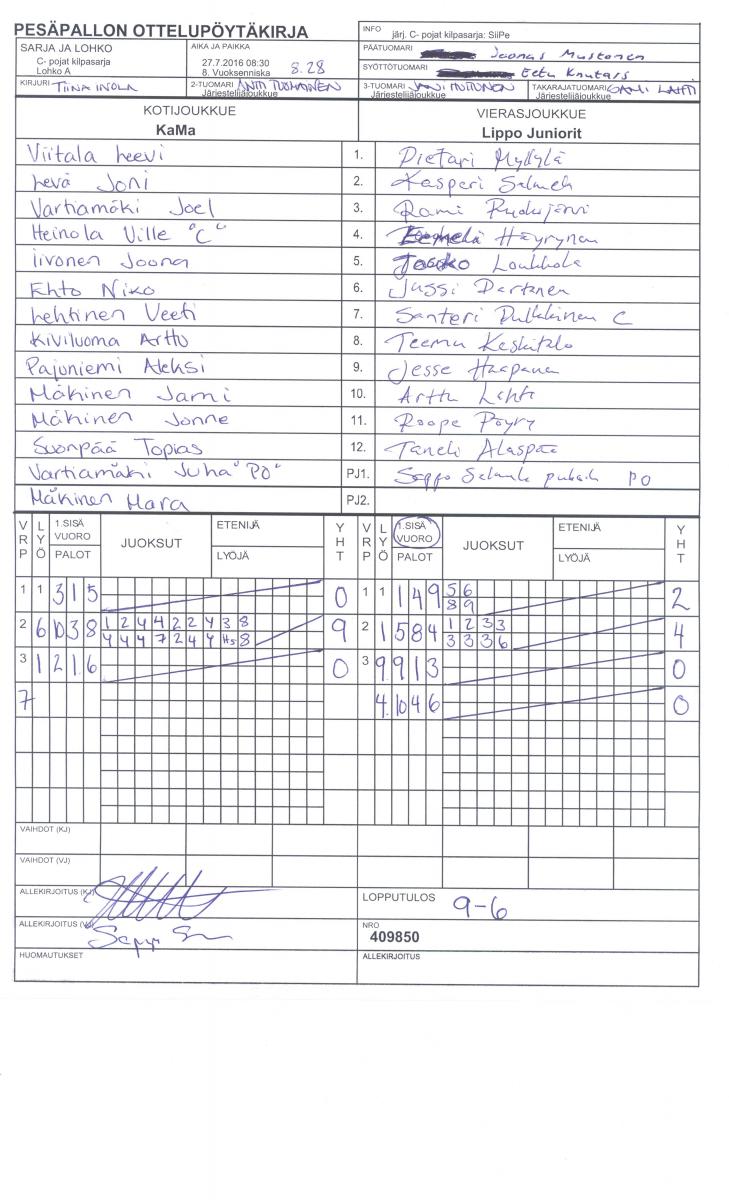 PESÄPALLON OTTELUPÖYTÄKIRJA
INFO järj. C- pojat kilpasarja: SiiPe
SARJA JA LOHKO
C- pojat kilpasarja
Lohko A
AIKA JA PAIKKA
27.7.2016 08:30
8. Vuoksenniska 8.28
PÄÄTUOMARI Joonas Mustonen
SYÖTTÖTUOMARI Eetu
KIRJURI TIINA INOLA
2-TUOMARI ANTTI
Järjestelijäjoukkue
3-TUOMARI JANI
Järjestelijäjoukkue
TAKARAJATUOMARI SAMI LAHTI
KOTIJOUKKUE
KaMa
VIERASJOUKKUE
Lippo Juniorit
Viitala Leevi 1. Pietari Myllylä
Levä Joni 2. Kasperi
Vartiamäki Joel 3. Rami
Heinola Ville "C" 4. Häyrynen
iivonen Joona 5. Loukkola
Ehto Niko 6. Jussi Partanen
Lehtinen Veeti 7. Santeri Pulkkinen C
Kiviluoma Arttu 8. Teemu Keskitalo
Pajuniemi Aleksi 9. Jesse Haapanen
Mäkinen Jami 10. Arttu Lahti
Mäkinen Jonne 11. Roope Pöyry
Suonpää Topias 12. Taneli Alaspää
Vartiamäki Juha "PO" PJ1. Seppo PO
Mäkinen Mara PJ2.
VRP LYÖ 1.SISÄ VUORO PALOT JUOKSUT ETENIJÄ LYÖJÄ YHT VRP LYÖ 1.SISÄ VUORO PALOT JUOKSUT ETENIJÄ LYÖJÄ YHT
1 1 3 1 5 0 1 1 1 4 9 5 6 2
8 9
2 6 10 3 8 1 2 4 4 2 2 4 3 8 9 2 1 5 8 4 1 2 3 3 4
4 4 4 7 2 4 4 Hs 8 3 3 3 6
3 1 2 1 6 0 3 9 9 1 3 0
7 4 10 4 6 0
VAIHDOT (KJ)
VAIHDOT (VJ)
ALLEKIRJOITUS (KJ)
LOPPUTULOS 9-6
ALLEKIRJOITUS (VJ)
NRO
409850
HUOMAUTUKSET
ALLEKIRJOITUS